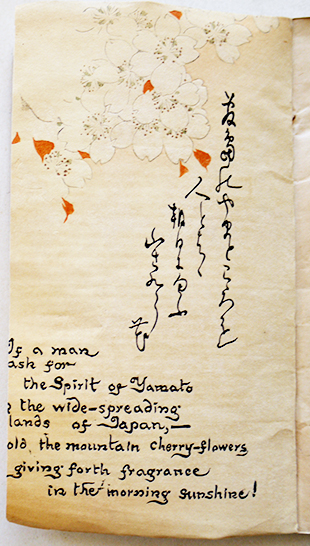 敷島のやまとこゝろを
人とはゝ
朝日に匂ふ
山さくら
花
If a man
ask for
the Spirit of Yamato
the wide-spreading
lands of Japan,—
old the mountain cherry-flowers
giving forth fragrance
in the morning sunshine!